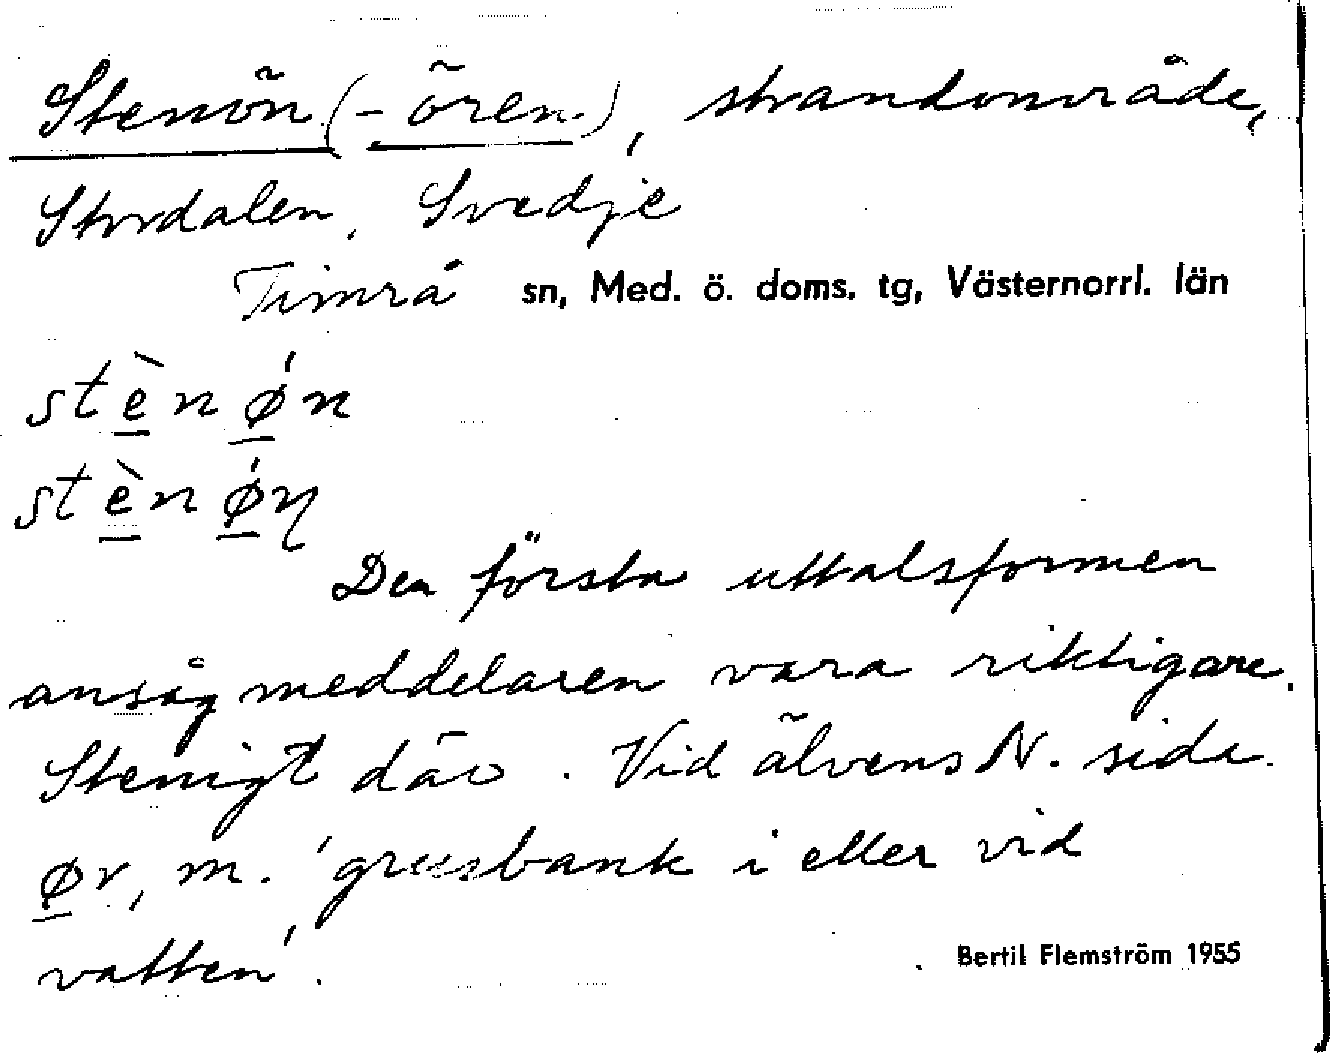 Stenön (-ören), strandområde,
Stordalen, Svedje
Timrå sn, Med. ö. doms. tg, Västernorrl. län
stè̱nǿ̱n
stè̱nǿ̱ɳ
Den första uttalsformen
ansåg meddelaren vara riktigare.
Stenigt där. Vid älvens N. sida.
ø̱r, m. 'grusbank i eller vid
vatten'.
Bertil Flemström 1955